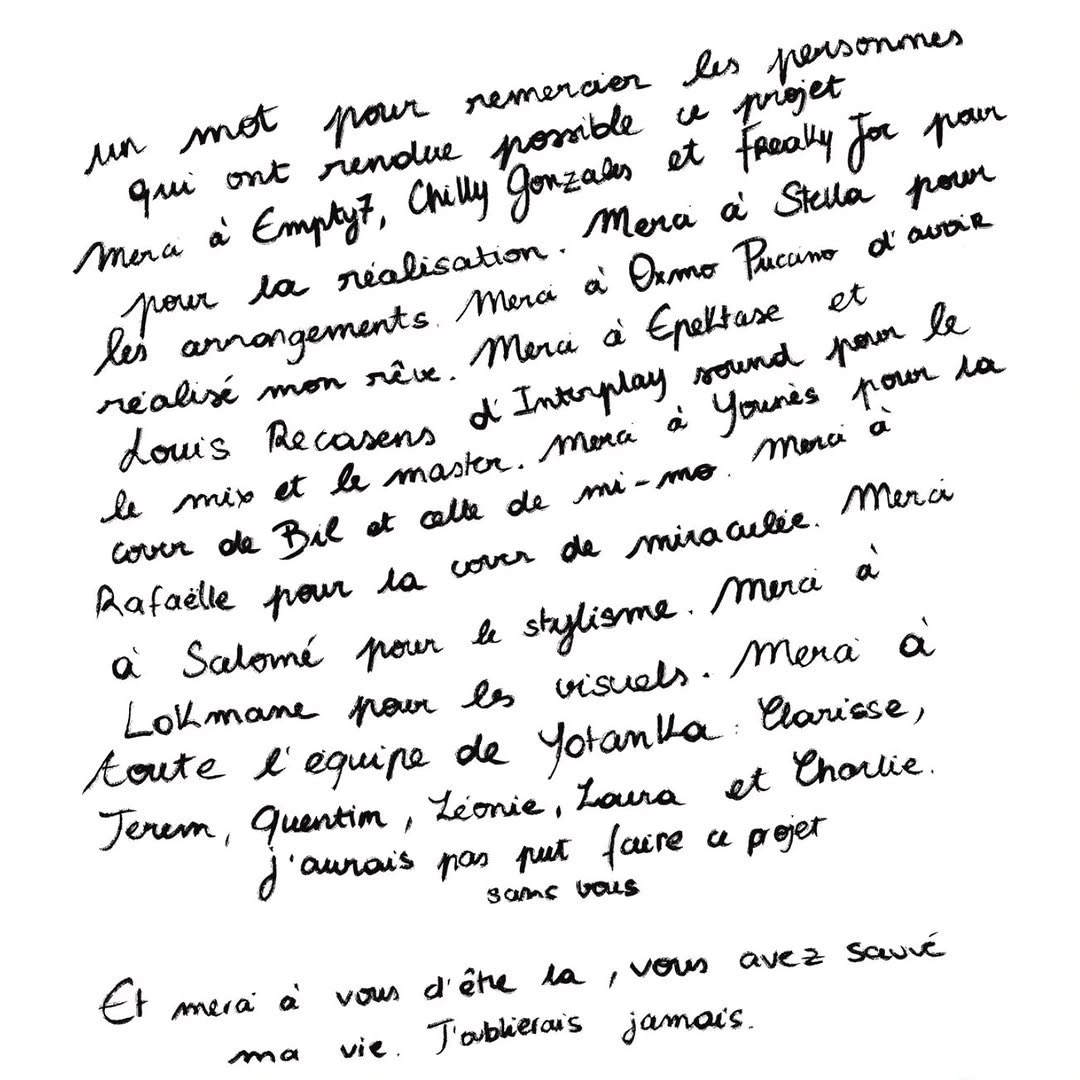 un mot pour remercier les personnes
qui ont rendue possible ce projet
Merci à Empty7, Chilly Gonzales et Freaky Joe pour
pour la réalisation. Merci à Stella pour
les arrangements. Merci à Oxmo Puccino d'avoir
réalisé mon rêve. Merci à Epektase et
Louis Recasens d'Interplay sound pour le
le mix et le master. Merci à Younès pour la
cover de Bil et celle de mi-mo. Merci à
Rafaëlle pour la cover de miraculée. Merci
à Salomé pour le stylisme. Merci à
Lokmane pour les visuels. Merci à
toute l'équipe de Yotanka : Clarisse,
Jerem, Quentim, Léonie, Laura et Charlie.
j'aurais pas put faire ce projet
sans vous
Et merci à vous d'être la, vous avez sauvé
ma vie. J'oublierais jamais.